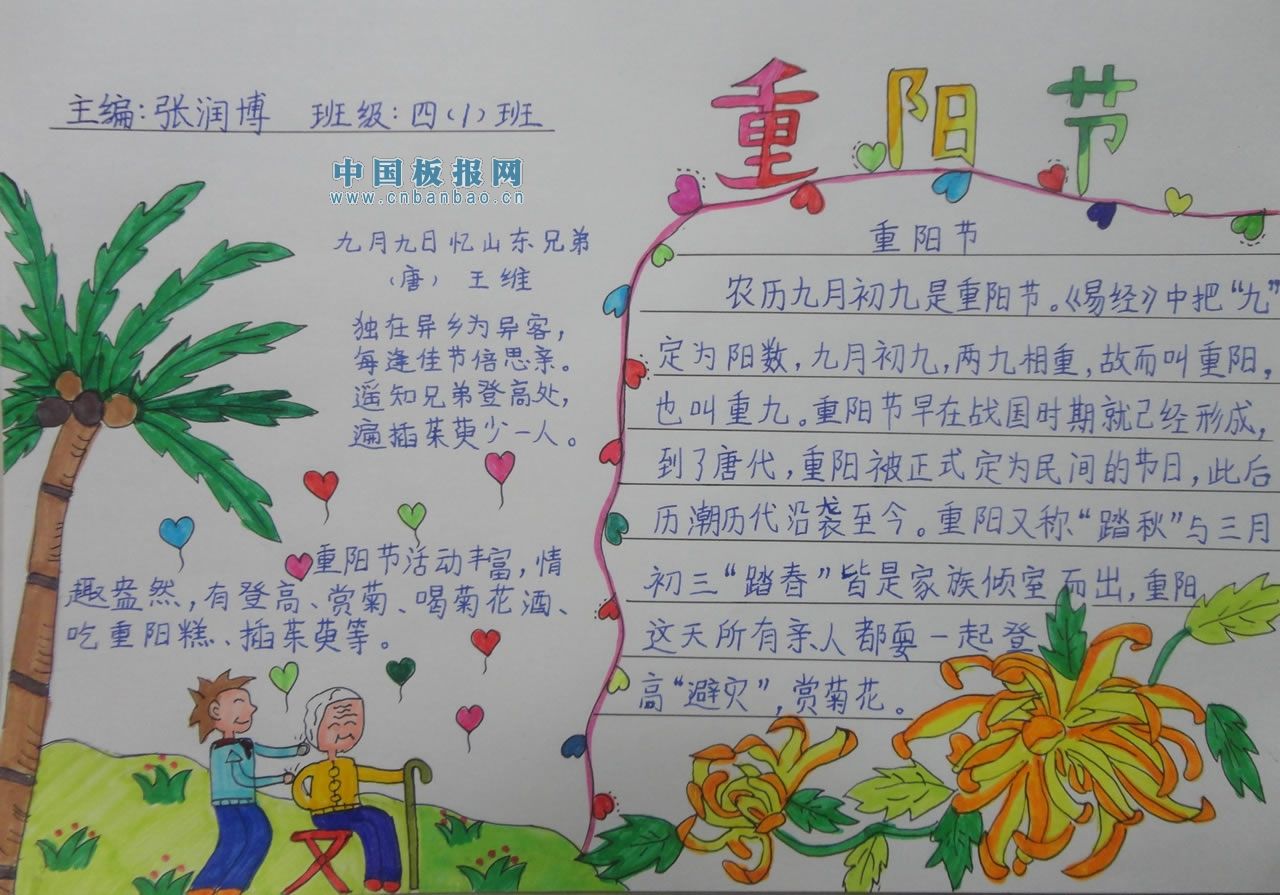 主编：张润博 班级：四（1）班
中国板报网
www.cnbanbao.cn
九月九日忆山东兄弟
（唐） 王维
独在异乡为异客，
每逢佳节倍思亲。
遥知兄弟登高处，
遍插茱萸少一人。
重阳节活动丰富，情
趣盎然，有登高、赏菊、喝菊花酒、
吃重阳糕、插茱萸等。
重阳节
重阳节
农历九月初九是重阳节。《易经》中把“九”
定为阳数，九月初九，两九相重，故而叫重阳，
也叫重九。重阳节早在战国时期就已经形成，
到了唐代，重阳被正式定为民间的节日，此后
历潮历代沿袭至今。重阳又称“踏秋”与三月
初三“踏春”皆是家族倾室而出，重阳
这天所有亲人都要一起登
高“避灾”，赏菊花。